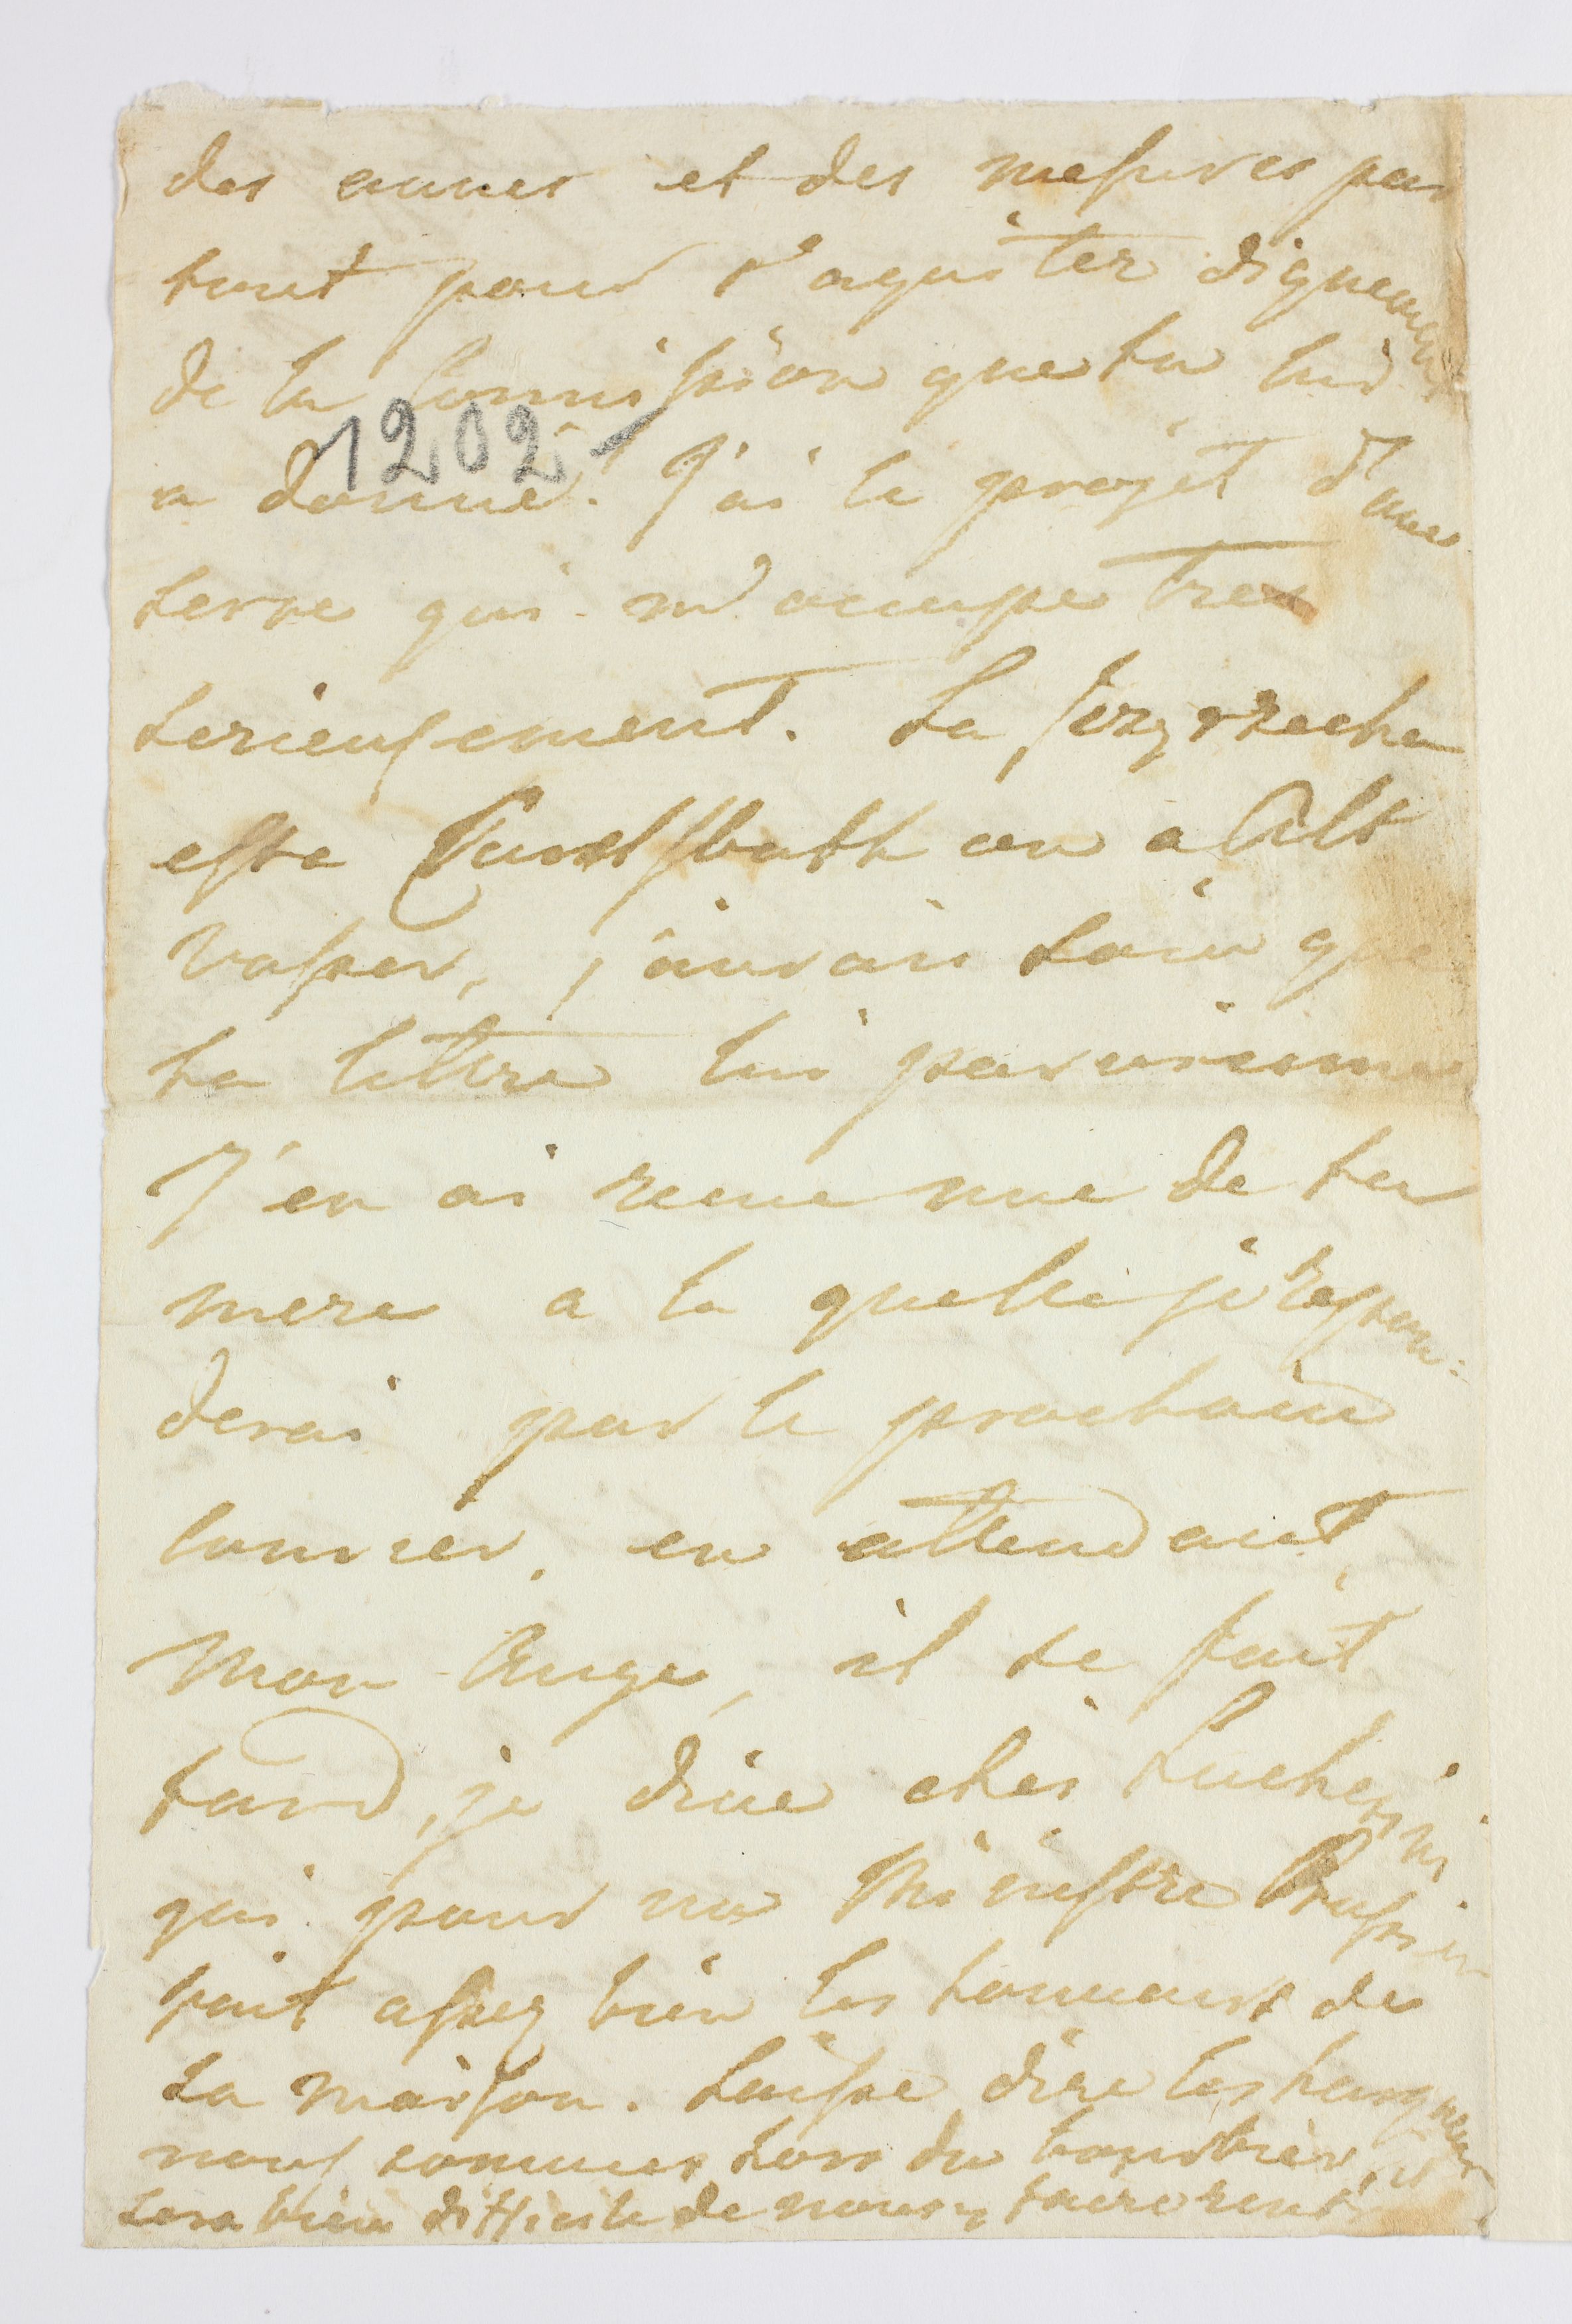 des aunes et des mesures par
tout pour s'aquiter dignement
de la Comission que tu lui
1202
a donné. J'ai le projet d'une
terre qui m'occupe tres
serieusement. La
est a ou a Alt
Wasser, j'aurais soin que
ta lettre lui parvienne
J'en ai reçue une de ta
mere a la quelle je repon-
derai par le prochain
courier, en attendant,
mon Ange, il se fait
tard, je dine chez Luchesini
qui pour un Ministre Prussien
fait assez bien les honneurs de
sa maison. Laisse dire les
nous sommes hors du bourbier, il
sera bien difficile de nous y faire